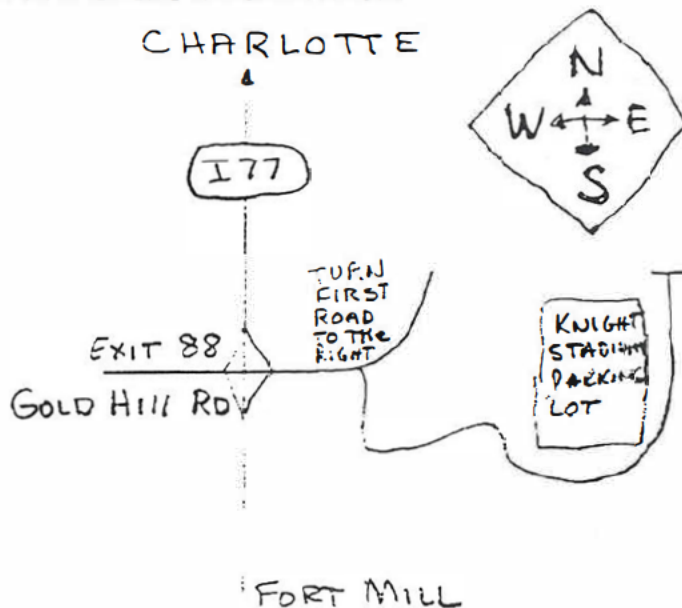 CHARLOTTE
N
W E
S
I77
TURN
FIRST
ROAD
TO THE
RIGHT
EXIT 88
GOLD HILL RD
KNIGHT
STADIUM
PARKING
LOT
FORT MILL